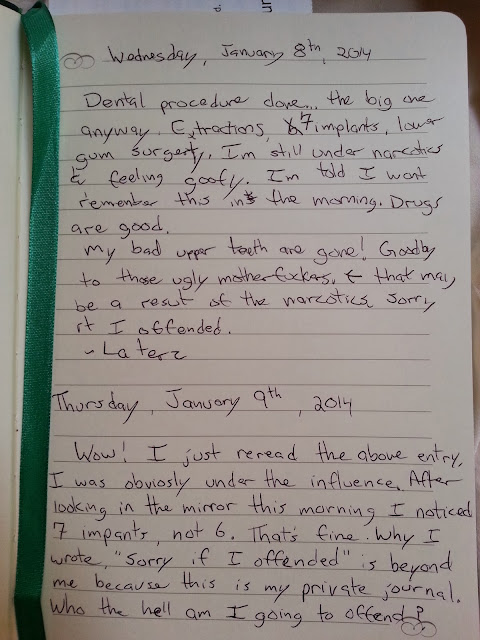 Wednesday, January 8th, 2014
Dental procedure done... the big one
anyway. Extractions, 7 implants, lower
gum surgery. I'm still under narcotics
& feeling goofy. I'm told I wont
remember this in the morning. Drugs
are good.
My bad upper teeth are gone! Goodby
to those ugly motherfuckers. ← that may
be a result of the narcotics. Sorry
if I offended.
~Laterz
Thursday, January 9th, 2014
Wow! I just reread the above entry.
I was obviosly under the influence. After
looking in the mirror this morning I noticed
7 impants, not 6. That's fine. Why I
wrote, "Sorry if I offended" is beyond
me because this is my private journal.
Who the hell am I going to offend?